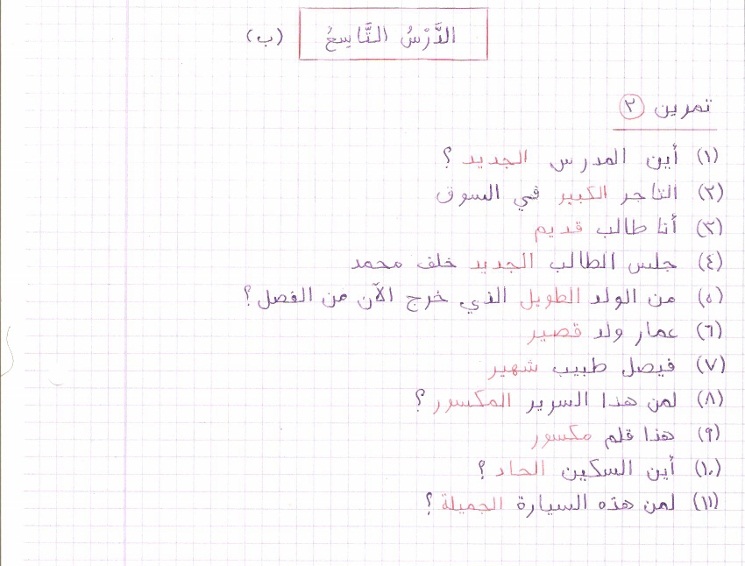 الدَّرْسُ التَّاسِعُ (ب)
تمرين ٢
(١) أين المدرس الجديد ؟
(٢) التاجر الكبير في السوق
(٣) أنا طالب قديم
(٤) جلس الطالب الجديد خلف محمد
(٥) من الولد الطويل الذي خرج الآن من الفصل ؟
(٦) عمار ولد قصير
(٧) فيصل طبيب شهير
(٨) لمن هذا السرير المكسور ؟
(٩) هذا قلم مكسور
(١٠) أين السكين الحاد ؟
(١١) لمن هذه السيارة الجميلة ؟